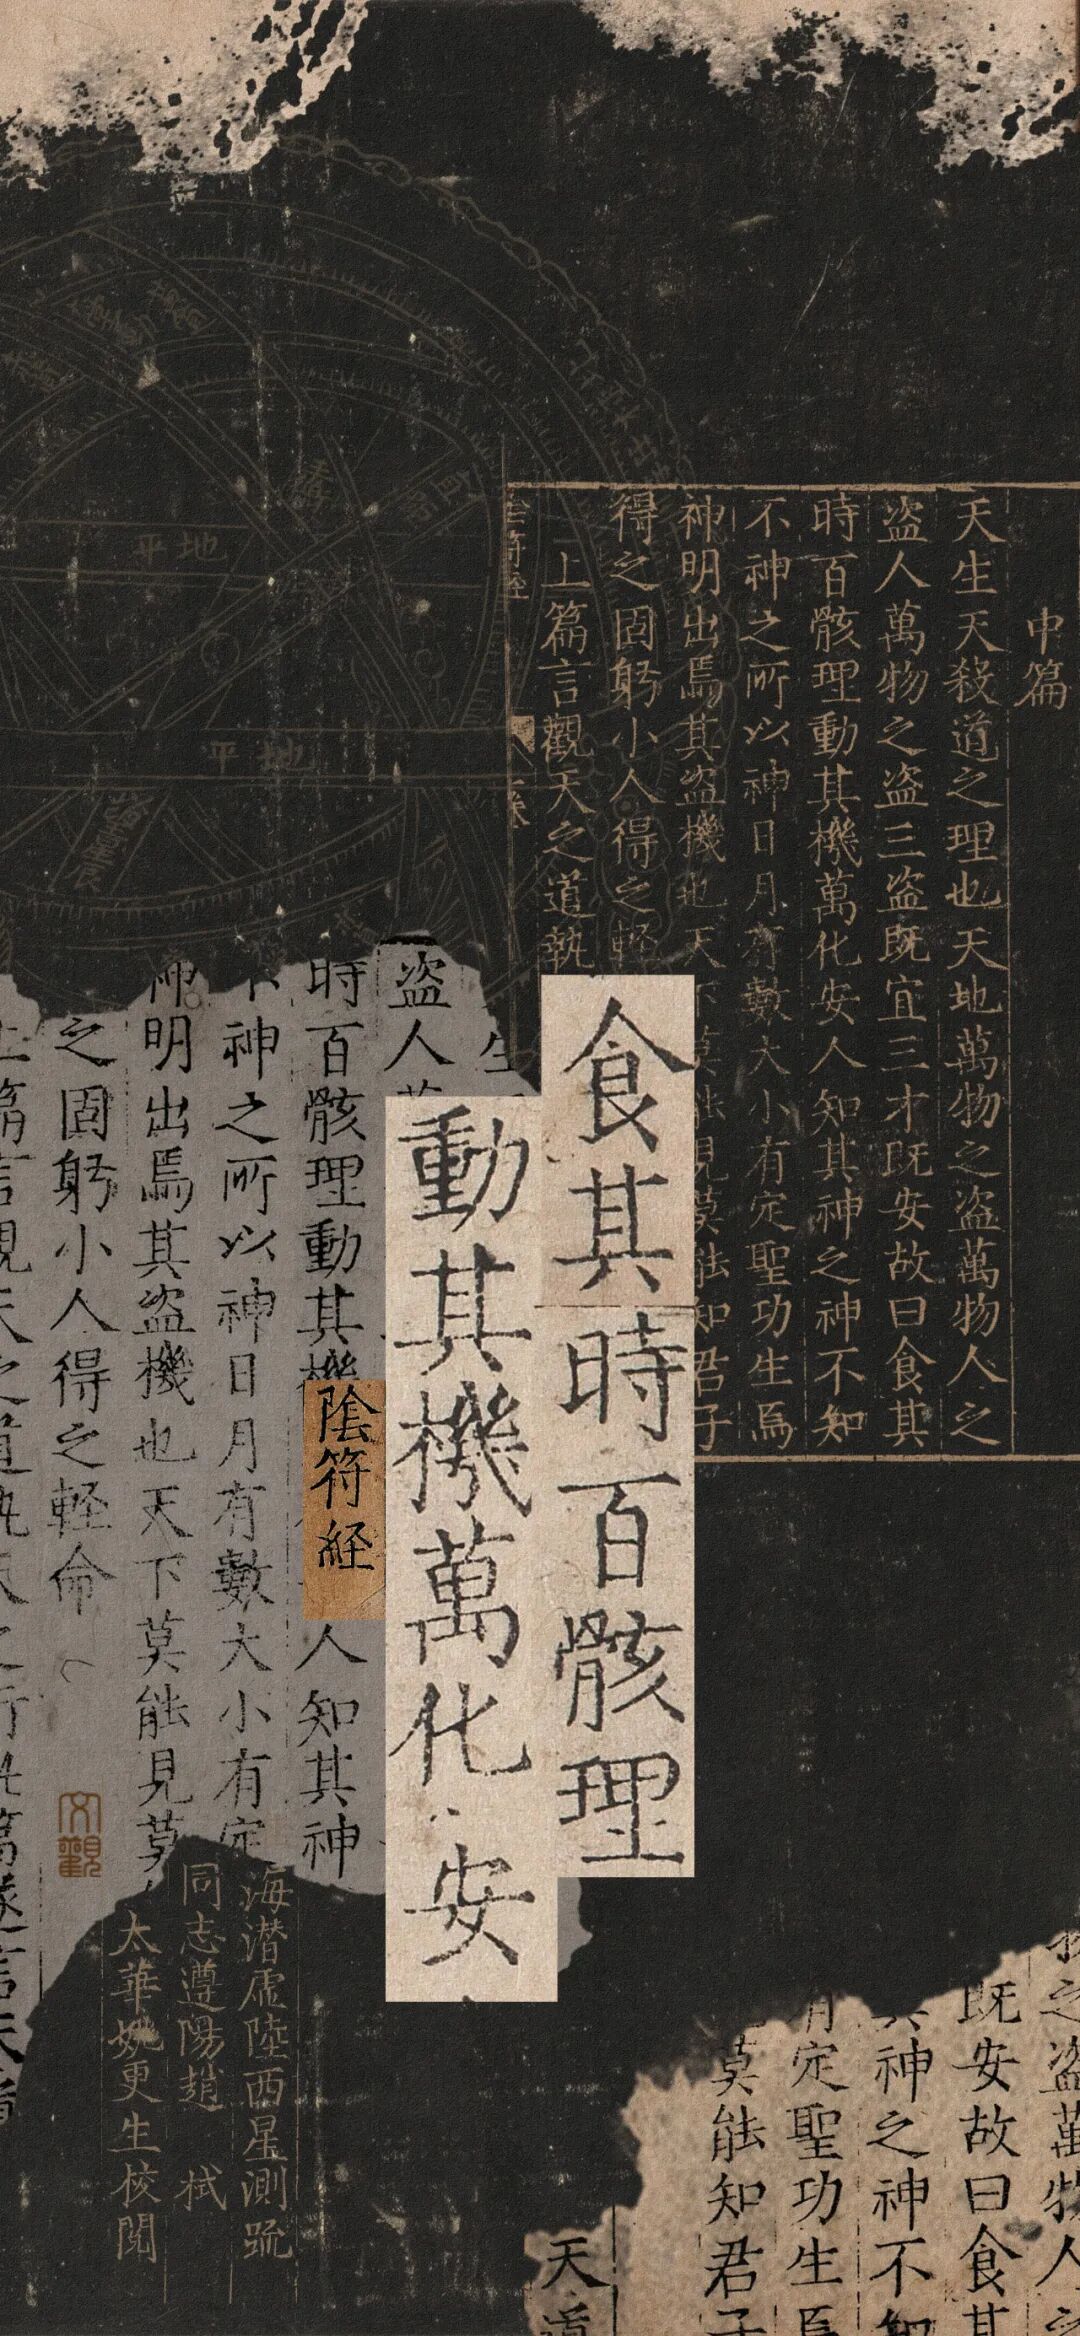 中篇
天生天殺道之理也天地萬物之盗萬物人之
盗人萬物之盗三盗既宜三才既安故曰食其
時百骸理動其機萬化安人知其神之神不知
不神之所以神日月有數大小有定聖功生焉
神明出焉其盗機也天下莫能見莫能知君子
得之固躬小人得之軽
上篇言觀天之道執
陰符經
食其時百骸理
動其機萬化安
陰符経
生
盗人萬
時百骸理動其機
人知其神
不神之所以神日月有數大小有定
神明出焉其盗機也天下莫能見莫
之固躬小人得之軽命
上篇言觀天之道執天之行此篇遂言天道
文觀
海潜虛陸西星測疏
同志遵陽趙 栻
太華姚更生校閱
之盗萬物人之
既安故曰食其
其神之神不知
有定聖功生焉
莫能知君子
天道
地平
地平